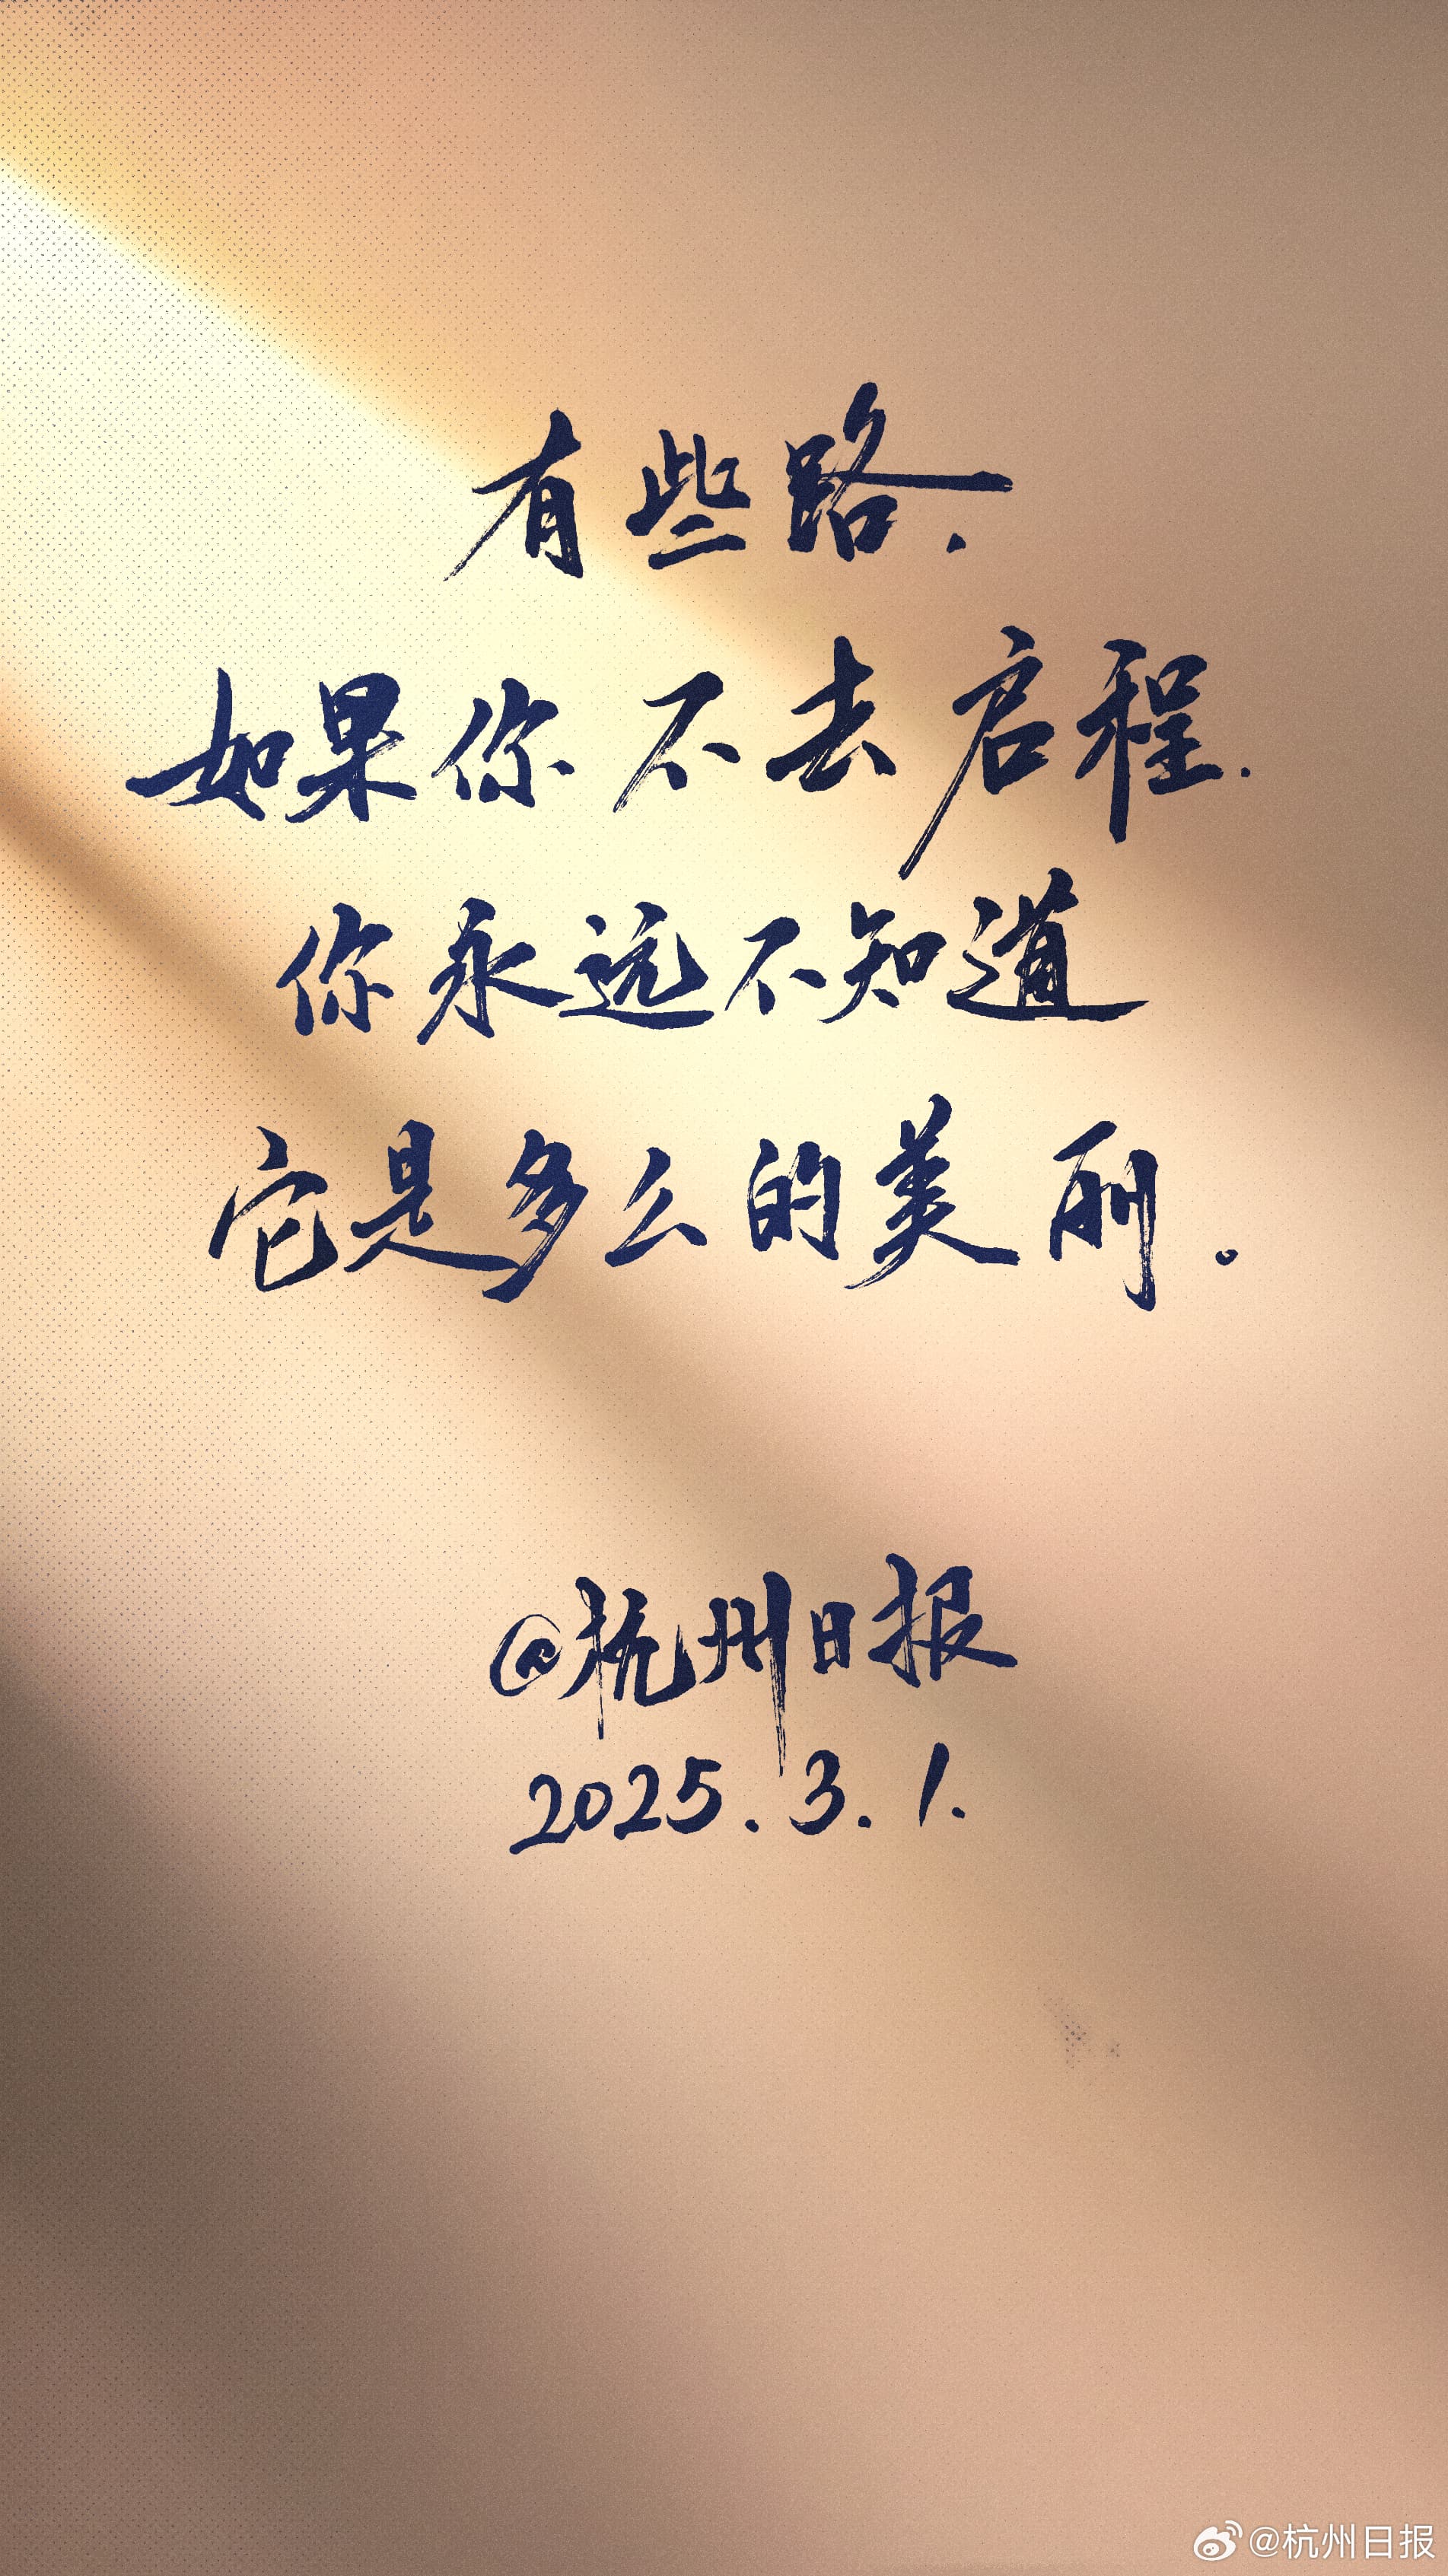 有些路，
如果你不去启程，
你永远不知道
它是多么的美丽。
@杭州日报
2025.3.1.
@杭州日报